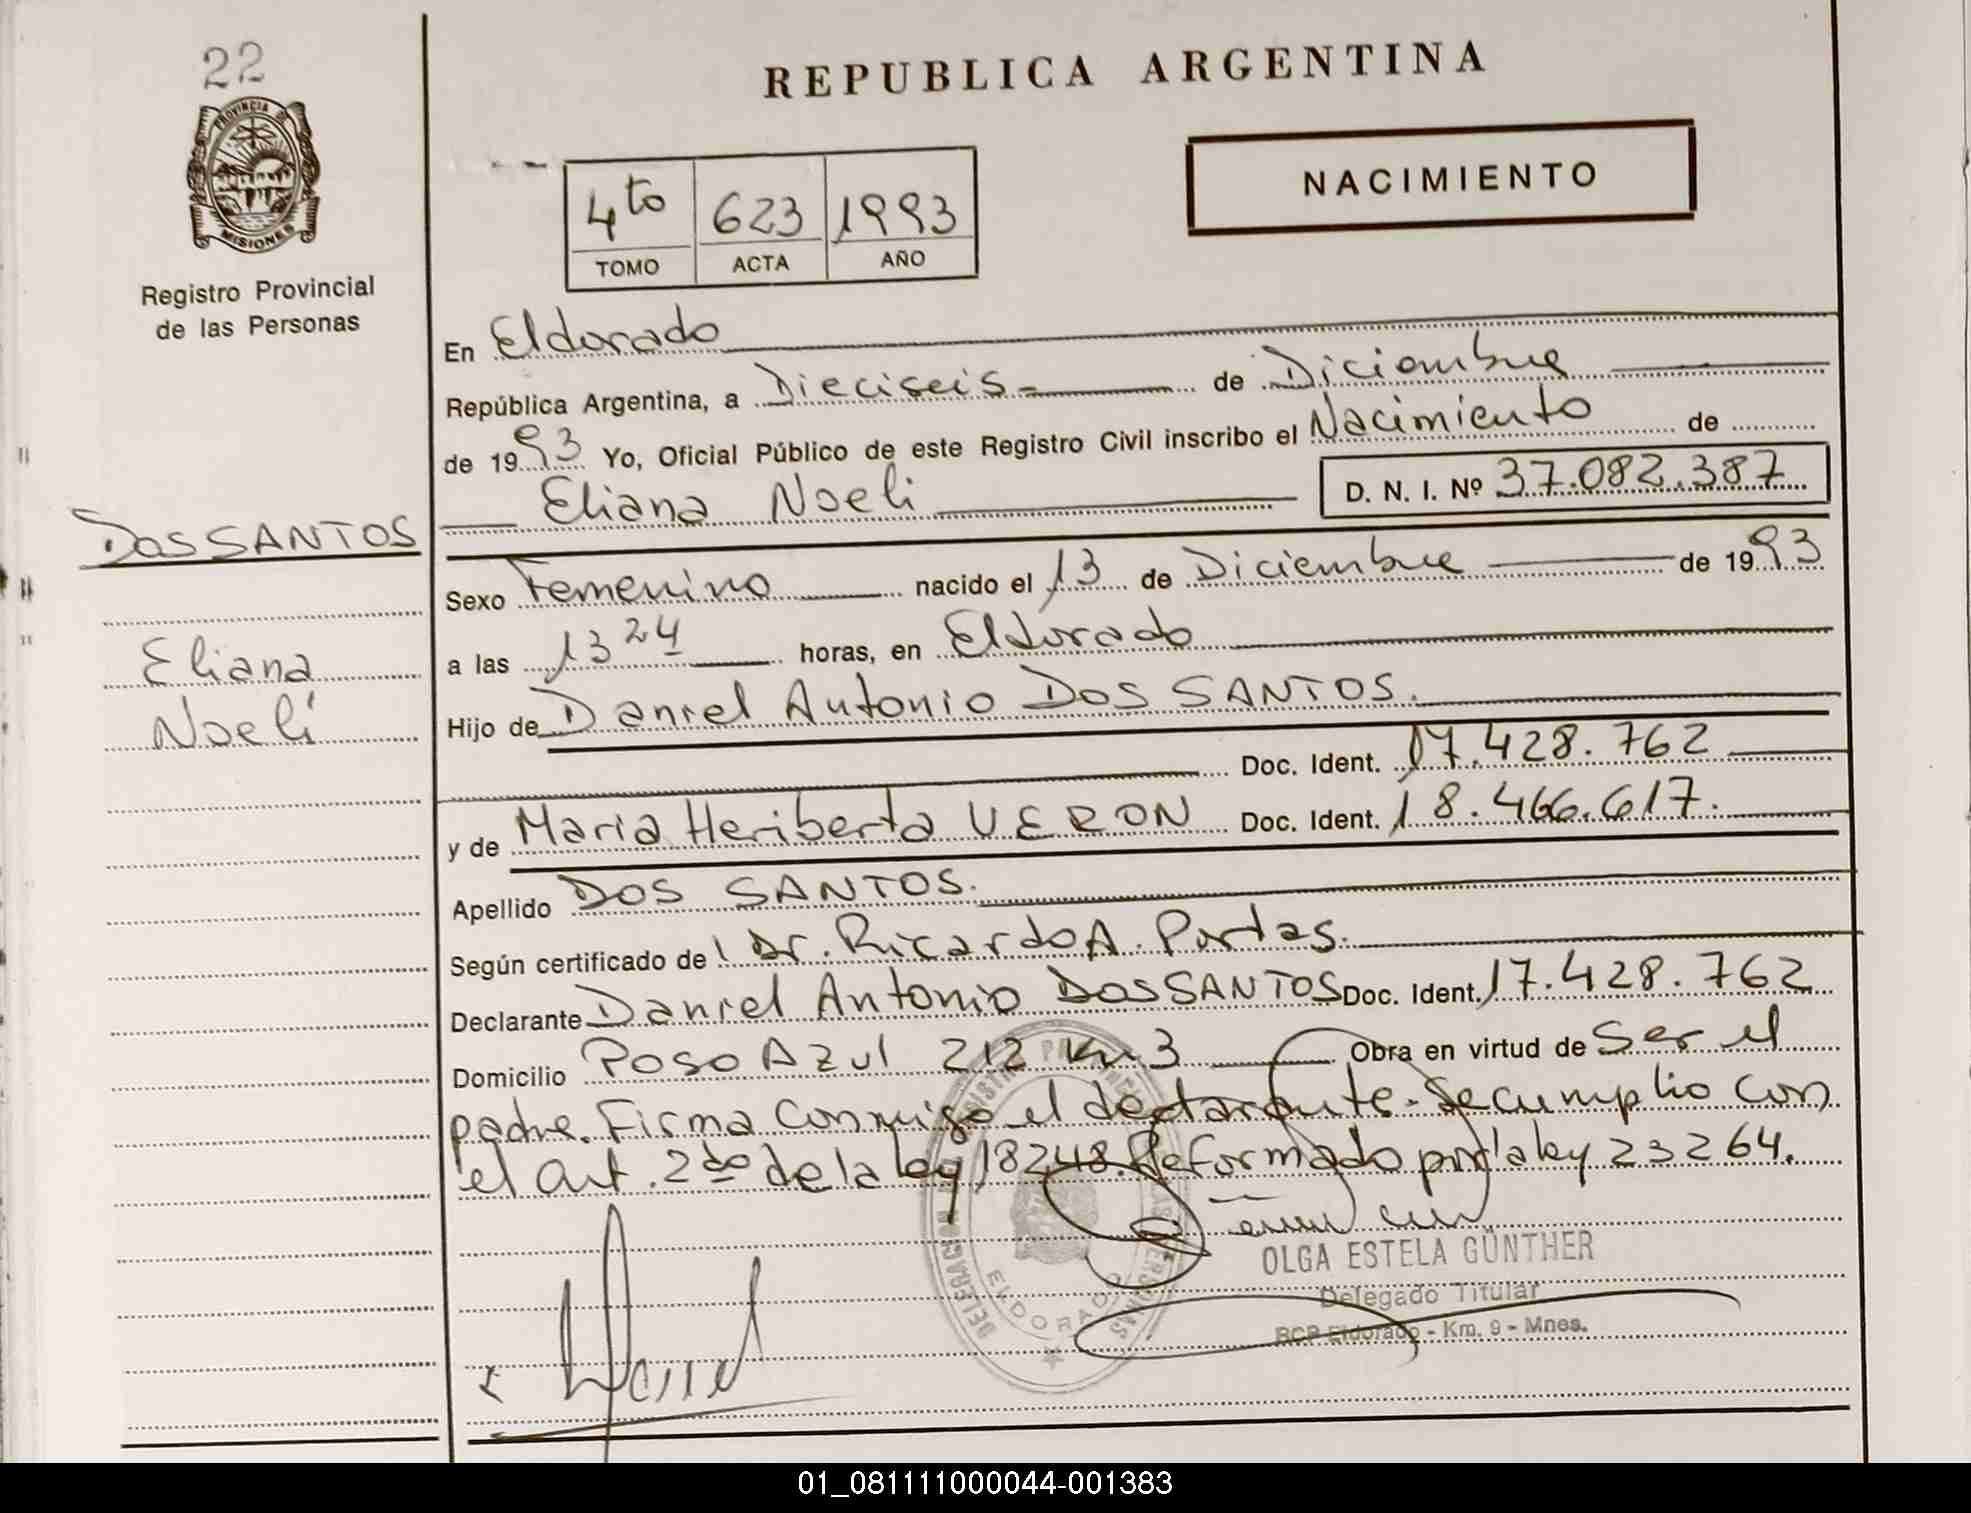 22
PROVINCIA DE
MISIONES
Registro Provincial
de las Personas
DOS SANTOS
Eliana
Noelí
REPUBLICA ARGENTINA
NACIMIENTO
4to 623 1993
TOMO ACTA AÑO
En Eldorado
República Argentina, a Dieciseis de Diciembre
de 1993 Yo, Oficial Público de este Registro Civil inscribo el Nacimiento de
Eliana Noeli D. N. I. Nº 37.082.387
Sexo Femenino nacido el 13 de Diciembre de 1993
a las 13 24 horas, en Eldorado
Hijo de Daniel Antonio DOS SANTOS.
Doc. Ident. 17.428.762
y de Maria Heriberta VERON Doc. Ident. 18.466.617.
Apellido DOS SANTOS.
Según certificado de Dr. Ricardo A. Portas.
Declarante Daniel Antonio DOS SANTOS Doc. Ident. 17.428.762
Domicilio Poso Azul 212 Km 3 Obra en virtud de Ser el
padre. Firma Conmigo el declarante. Se cumplio con
el art. 2do de la ley 18248 Reformado por la ley 23264.
OLGA ESTELA GÜNTHER
Delegado Titular
RCP Eldorado - Km. 9 - Mnes.
ELDORADO
Daniel
01_081111000044-001383